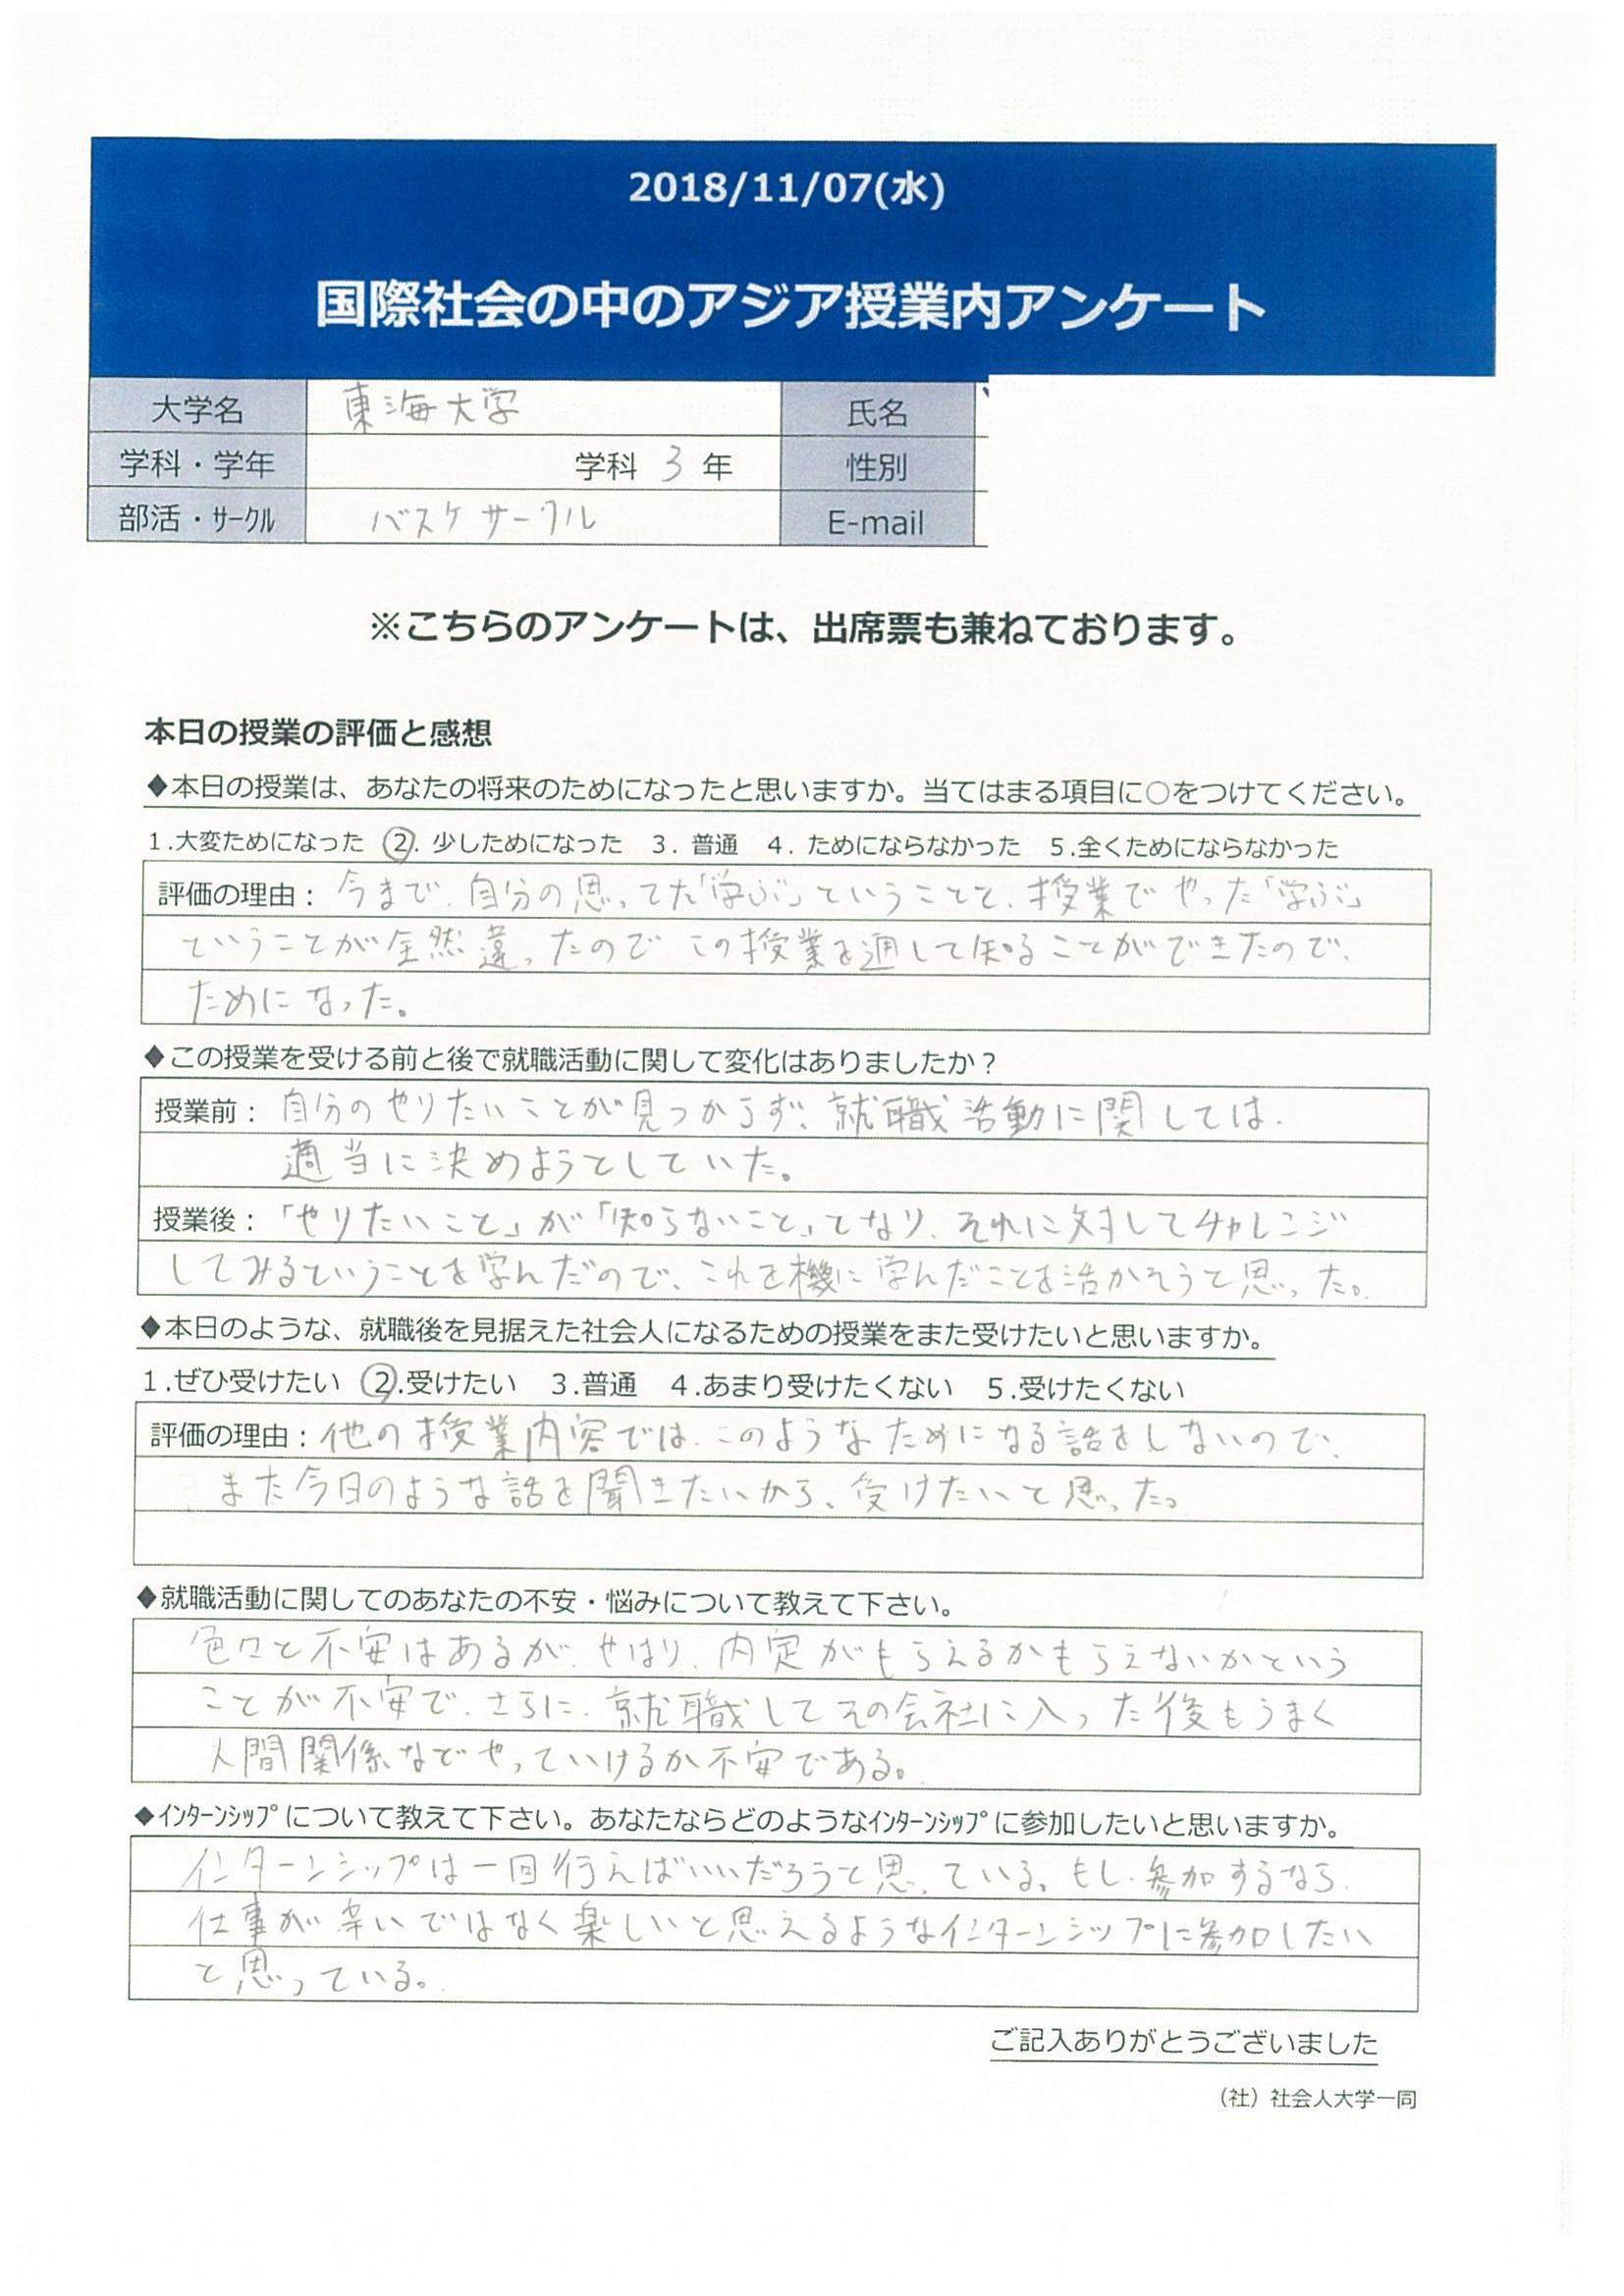 2018/11/07(水)
国際社会の中のアジア授業内アンケート
大学名 東海大学 氏名
学科・学年 学科 3 年 性別
部活・ｻｰｸﾙ バスケサークル E-mail
※こちらのアンケートは、出席票も兼ねております。
本日の授業の評価と感想
◆本日の授業は、あなたの将来のためになったと思いますか。当てはまる項目に○をつけてください。
1.大変ためになった ②. 少しためになった 3. 普通 4. ためにならなかった 5.全くためにならなかった
評価の理由： 今まで、自分の思ってた「学ぶ」ということと、授業でやった「学ぶ」
ということが全然違ったので この授業を通して知ることができたので、
ためになった。
◆この授業を受ける前と後で就職活動に関して変化はありましたか？
授業前： 自分のやりたいことが見つからず、就職活動に関しては、
適当に決めようとしていた。
授業後：「やりたいこと」が「知らないこと」となり、それに対してチャレンジ
してみるということを学んだので、これを機に学んだことを活かそうと思った。
◆本日のような、就職後を見据えた社会人になるための授業をまた受けたいと思いますか。
1.ぜひ受けたい ②.受けたい 3.普通 4.あまり受けたくない 5.受けたくない
評価の理由： 他の授業内容では、このようなためになる話をしないので、
また今日のような話を聞きたいから、受けたいと思った。
◆就職活動に関してのあなたの不安・悩みについて教えて下さい。
色々と不安はあるが、やはり、内定がもらえるかもらえないかという
ことが不安で、さらに、就職してその会社に入った後もうまく
人間関係などやっていけるか不安である。
◆ｲﾝﾀｰﾝｼｯﾌﾟについて教えて下さい。あなたならどのようなｲﾝﾀｰﾝｼｯﾌﾟに参加したいと思いますか。
インターンシップは一回行えばいいだろうと思っている。もし、参加するなら、
仕事が辛いではなく楽しいと思えるようなインターンシップに参加したい
と思っている。
ご記入ありがとうございました
（社）社会人大学一同